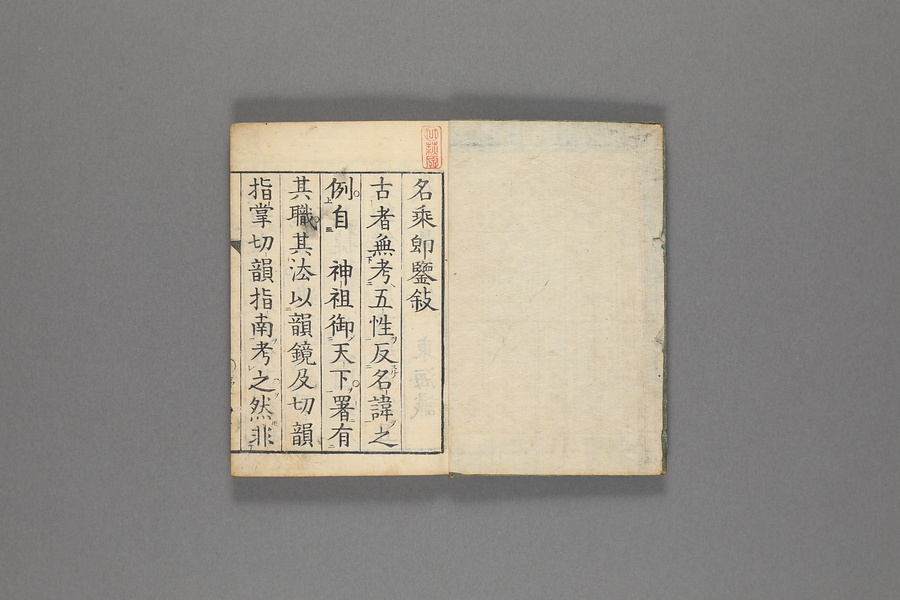 名乘即鑒敍
古者無考五性反名諱之
例自　神祖御天下署有
其職其法以韻鏡及切韻
指掌切韻指南考之然非